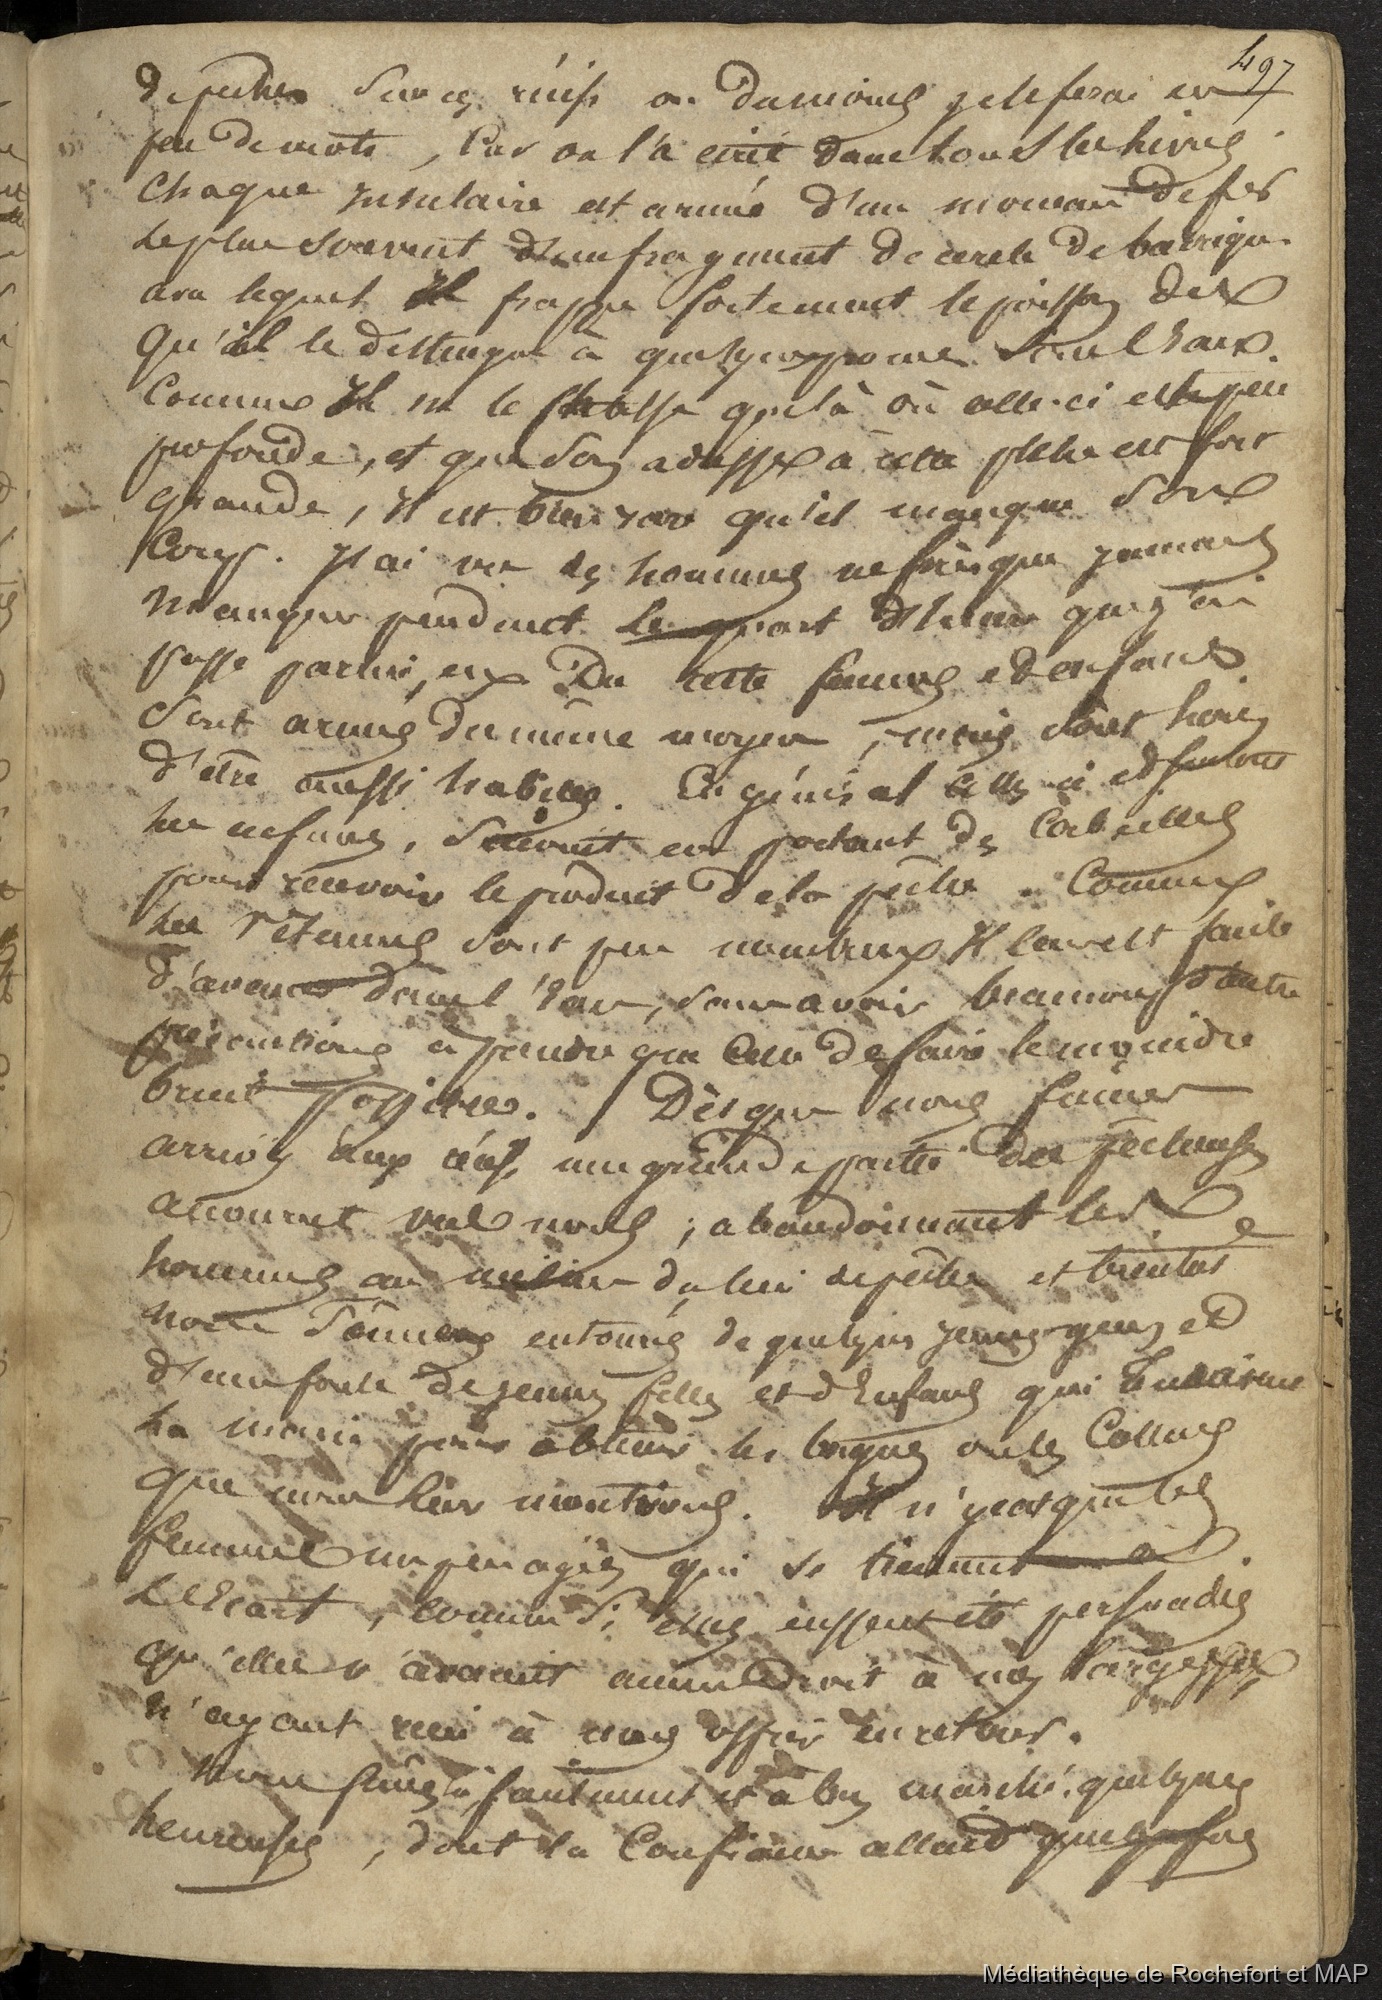 497
de pêche sur ces récifs ou du moins je le ferai en
peu de mots, car on l'a écrit dans tous les livres.
Chaque insulaire est armé d'un morceau de fer
le plus souvent d'un fragment de cercle de barrique
avec lequel il frappe fortement le poisson dès
qu'il le distingue à quelques pouces sous l'eau.
Comme il ne le chasse que là où celle-ci est peu
profonde, et que son adresse à cette pêche est fort
grande, il est bien rare qu'il manque son
coup. J'ai vu des hommes ne presque jamais
manquer pendant le quart d'heure que j'ai
passé parmi eux. Du reste femmes et enfans
sont armés du même moyen, mais sont loin
d'être aussi habiles. En général celles-ci et surtout
les enfans, suivent en portant des corbeilles
pour recevoir le produit de la pêche. Comme
les vêtemens sont peu nombreux il leur est facile
d'avancer dans l'eau, sans avoir beaucoup d'autre
précautions à prendre que celle de faire le moindre
bruit possible. / Dès que nous fumes
arrivés aux récifs une grande partie des pêcheurs
accourut vers nous, abandonnant les
hommes au milieu du lieu de pêche et bientôt
nous fûmes entourés de quelques jeunes gens et
d'une foule de jeunes filles et d'enfans qui tendaient
la main pour obtenir les bagues ou les colliers
que nous leur montrions. Il n'y eut que les
femmes un peu agées qui se tiennent à
l'écart, comme si elles eussent été persuadées
qu'elles n'avaient aucun droit à nos largesses
n'ayant rien à nous offrir en retour.
Nous fimes là facilement et à bon marché quelques
heureuses, dont la confiance allait quelquefois